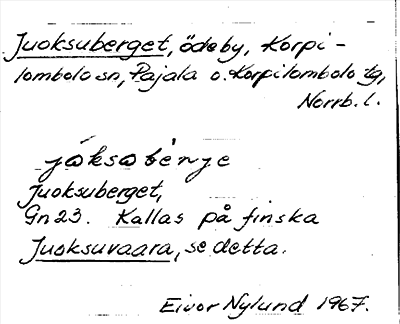 Juoksuberget, ödeby, Korpi-
lombolo sn, Pajala o. Korpilombolo tg,
Norrb. l.
Juoksuberget,
Gn 23. Kallas på finska
Juoksuvaara, se detta.
Eivor Nylund 1967.